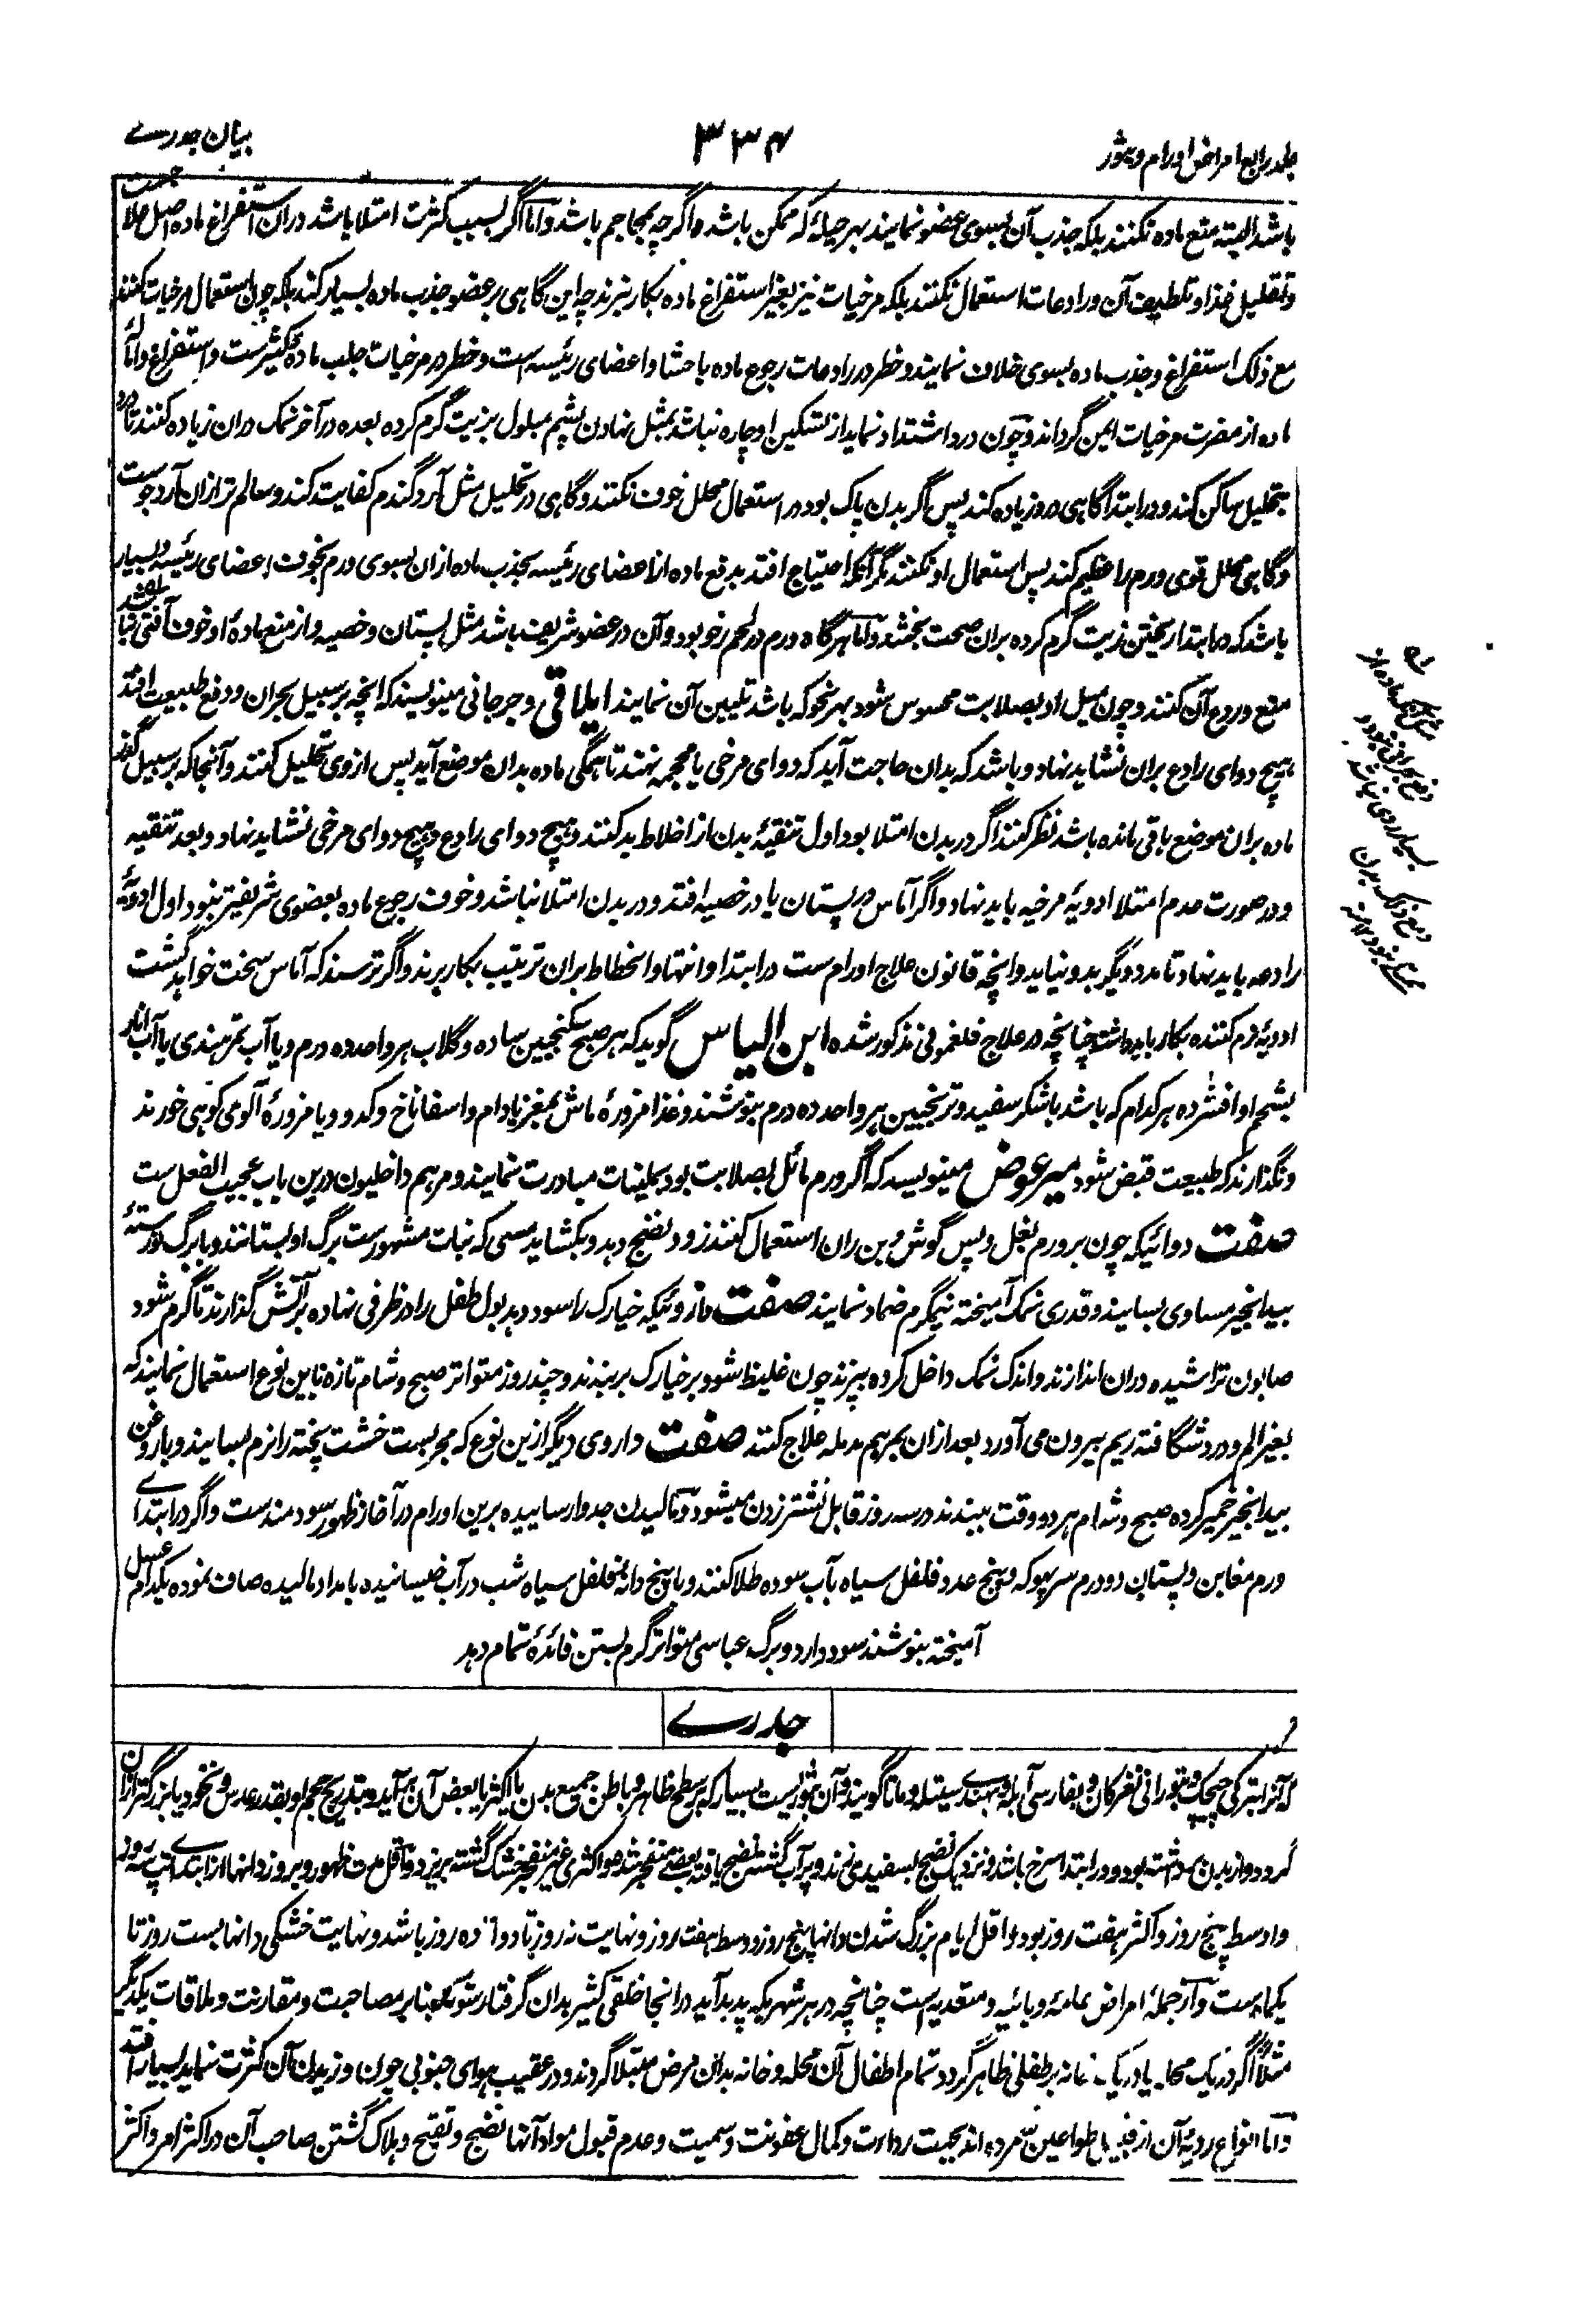 جلد رابع امراض اورام و بثور
۳۳۴
بیان جدرے
باشد البته منع ماده نکنند بلکه جذب آن بسوی عضو نمایند بهر حیلۀ که ممکن باشد و اگرچه بمحاجم باشد و اما اگر بسبب کثرت امتلا باشد دران استفراغ ماده اصل علاج ست
و تقلیل غذا و تلطیف آن و رادعات استعمال نکنند بلکه مرخیات نیز بغیر استفراغ ماده بکار نبرند چه این گاهی بر عضو جذب ماده بسیار کند بلکه چون استعمال مرخیات کنند
مع ذلک استفراغ و جذب ماده بسوی خلاف نمایند و خطر در رادعات رجوع ماده باحشا و اعضای رئیسه است و خطر در مرخیات جلب ماده کثیر ست و استفراغ و امالۀ
ماده از مضرت مرخیات ایمن گرداند و چون درد اشتداد نماید از تسکین او چاره نباشد بمثل نهادن پشم مبلول بزیت گرم کرده بعده در آخر نمک دران زیاده کنند تا درد
بتحلیل ساکن کند و در ابتدا گاهی درد زیاده کند پس اگر بدن پاک بود در استعمال محلل خوف نکنند و گاهی در تحلیل مثل آرد گندم کفایت کند و سالم تر ازان آرد جو ست
و گاهی محلل قوی ورم را عظیم کند پس استعمال او نکنند مگر آنکه احتیاج افتد بدفع ماده از اعضای رئیسه بجذب ماده ازان بسوی ورم بخوف اعضای رئیسه و بسیار
باشد که در ابتدا ریختن زیت گرم کرده بران صحت بخشد و اما هرگاه ورم در لحم رخو بود و آن در عضو شریف باشد مثل پستان و خصیه و از منع مادۀ او خوف آفتی نباشد
منع و ردع آن کنند و چون میل او بصلابت محسوس شود بهر نحو که باشد تلیین آن نمایند ایلاقی و جرجانی مینویسند که انچه بر سبیل بحران و دفع طبیعت افتد
هیچ دوای رادع بران نشاید نهاد و باشد که بدان حاجت آید که دوای مرخی یا محجمه نهند تا همگی ماده بدان موضع آید پس از وی تحلیل کنند و آنجا که بر سبیل
ماده بران موضع باقی مانده باشد نظر کنند اگر در بدن امتلا بود اول تنقیۀ بدن از اخلاط بد کنند و هیچ دوای رادع و هیچ دوای مرخی نشاید نهاد و بعد تنقیه
و در صورت عدم امتلا ادویۀ مرخیه باید نهاد و اگر آماس در پستان یا در خصیه افتد و در بدن امتلا نباشد و خوف رجوع ماده بعضوی شریفتر نبود اول ادویۀ
رادعه باید نهاد تا مدد دیگر بدو نیاید و انچه قانون علاج اورام ست در ابتدا و انتها و انحطاط بران ترتیب بکار برند و اگر ترسند که آماس سخت خواهد گشت
ادویۀ نرم کننده بکار باید داشت چنانچه در علاج فلغمونی مذکور شده ابن الیاس گوید که هر صبح سکنجبین ساده و گلاب هر واحد ده درم و یا آب تمرهندی یا آب انار
بشحم او افشرده هر کدام که باشد باشکر سفید و ترنجبین هر واحد ده درم بنوشند و غذا مزورۀ ماش بمغز بادام و اسفاناخ و کدو و یا مزورۀ آلوی کوهی خورند
و نگذارند که طبیعت قبض شود میر عوض مینویسد که اگر ورم مائل بصلابت بود بملینات مبادرت نمایند و مرهم داخلیون درین باب عجیب الفعل ست
صفت دوائیکه چون بر ورم بغل و پس گوش و بن ران استعمال کنند زود نضج دهد و بکشاید مسی که نبات مشهور ست برگ او بستانند و با برگ نورستۀ
بیدانجیر مساوی بسایند و قدری نمک آمیخته نیمگرم ضماد نمایند صفت داروئیکه خیارک را سود دهد بول طفل را در ظرفی نهاده بر آتش گذارند تا گرم شود
صابون تراشیده دران اندازند و اندک نمک داخل کرده بپزند چون غلیظ شود بر خیارک بر بندند و چند روز متواتر صبح و شام تازه باین نوع استعمال نمایند که
بغیر الم و درد شگافته ریم بیرون می آورد بعد ازان بمرهم مدمله علاج کنند صفت داروی دیگر ازین نوع که مجرب ست خشت پخته را نرم بسایند و با روغن
بیدانجیر خمیر کرده صبح و شام هر دو وقت ببندند در سه روز قابل نشتر زدن میشود و مالیدن جدوار سابیده برین اورام در آغاز ظهور سودمند ست و اگر در ابتدای
ورم مغابن و پستان و ورم سر و پنج عدد فلفل سیاه بآب سوده طلا کنند و یا پنج دانه فلفل سیاه شب در آب خیسانیده بامداد مالیده صاف نموده عسل
آمیخته بنوشند سود دارد و برگ عباسی متواتر گرم بستن فائدۀ تمام دهد
جدرے
که آنرا بترکی چیچک و بفارسی آبله و بهندے سیتلا و ماتا گویند و آن بثوریست بسیار که بر سطح ظاهر و باطن جمیع بدن یا اکثر یا بعض آن می آید و بتدریج حجم او بقدر عدس و نخود یا بزرگتر ازان
گردد و از بدن برداشته بود و در ابتدا سرخ باشد و نزدیک نضج بسفیدی زند و پر آب گشته نضج یافته بعضے منفجر شده و اکثری غیر منفجر خشک گشته بریزد و اقل مدت ظهور و بروز دانها از ابتدای تپ سه روز
و اوسط پنج روز و اکثر هفت روز بود و اقل ایام بزرگ شدن دانها پنج روز و وسط هفت روز و نهایت نه روز تا دوازده روز باشد و نهایت خشکی دانها بست روز تا
یکماه است و از جملۀ امراض عامه وبائیه و متعدیه است چنانچه در هر شهریکه پدید آید در انجا خلقی کثیر بدان گرفتار شوند بنابر مصاحبت و مقارنت و ملاقات یکدیگر
مثلاً اگر در یک محله یا در یک خانه بر طفلی ظاهر گردد تمام اطفال آن محله و خانه بدان مرض مبتلا گردند و در عقیب هوای جنوبی چون وزیدن آن کثرت نماید بسیار افتد
و اما انواع ردیۀ آن از قبیل طواعین شمرده اند بجهت رداءت و کمال عفونت و سمیت و عدم قبول مواد آنها نضج و تقیح و هلاک گشتن صاحب آن در اکثر امر و اکثر